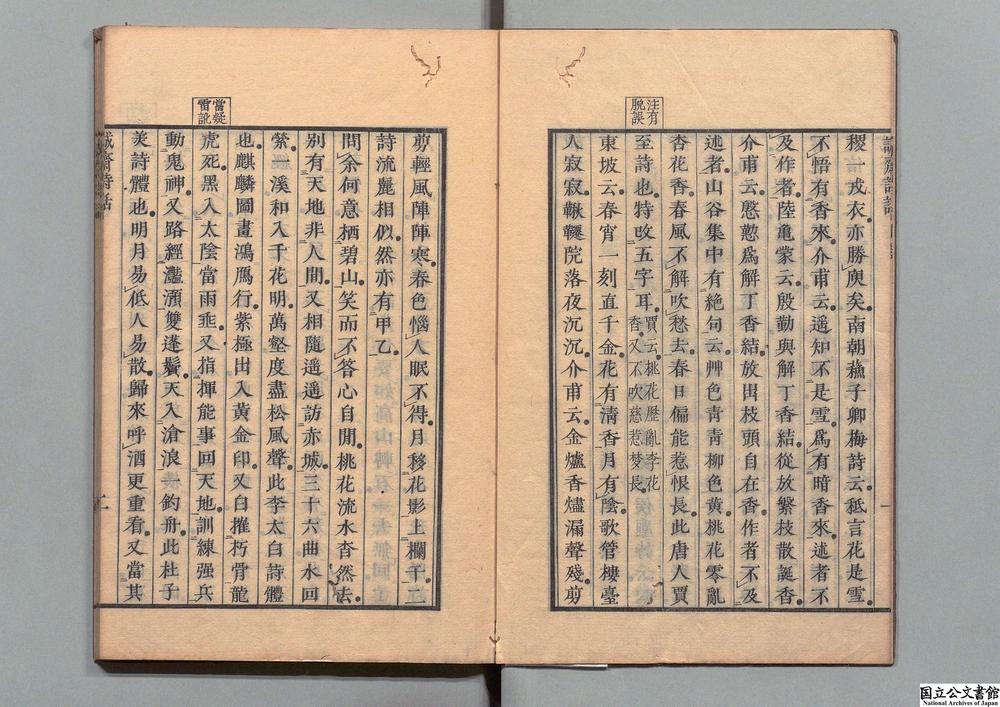 注有
脱誤
稷一戎衣亦勝臾矣南朝蘓子卿梅詩云秪言花是雪
不悟有香來介甫云遥知不是雪爲有暗香來述者不
及作者陸龜蒙云殷勤與解丁香結從放繁枝散誕香
介甫云慇懃爲解丁香結放出枝頭自在香作者不及
述者山谷集中有絶句云艸色青青柳色黄桃花零亂
杏花香春風不解吹愁去春日偏能惹恨長此唐人賈
至詩也特攺五字耳賈云桃花歷亂李花香又不吹愁惹夢長
東坡云春宵一刻直千金花有淸香月有陰歌管樓臺
人寂寂鞦韆院落夜沉沉介甫云金爐香燼漏聲殘剪
當疑
雷訛
剪輕風陣陣寒春色惱人眠不得月移花影上欄干二
詩流麗相似然亦有甲乙
問余何意栖碧山笑而不答心自閒桃花流水杳然去
别有天地非人間又相隨遥遥訪赤城三十六曲水回
縈一溪和入千花明萬壑度盡松風聲此李太白詩體
也麒麟圖畫鴻鴈行紫極出入黄金印又白摧朽骨龍
虎死黑入太陰當雨垂又指揮能事回天地訓練强兵
動鬼神又路經灩澦雙蓬鬢天入滄浪一釣舟此杜子
美詩體也明月易低人易散歸來呼酒更重看又當其
誠齋詩話
二
国立公文書館
National Archives of Japan